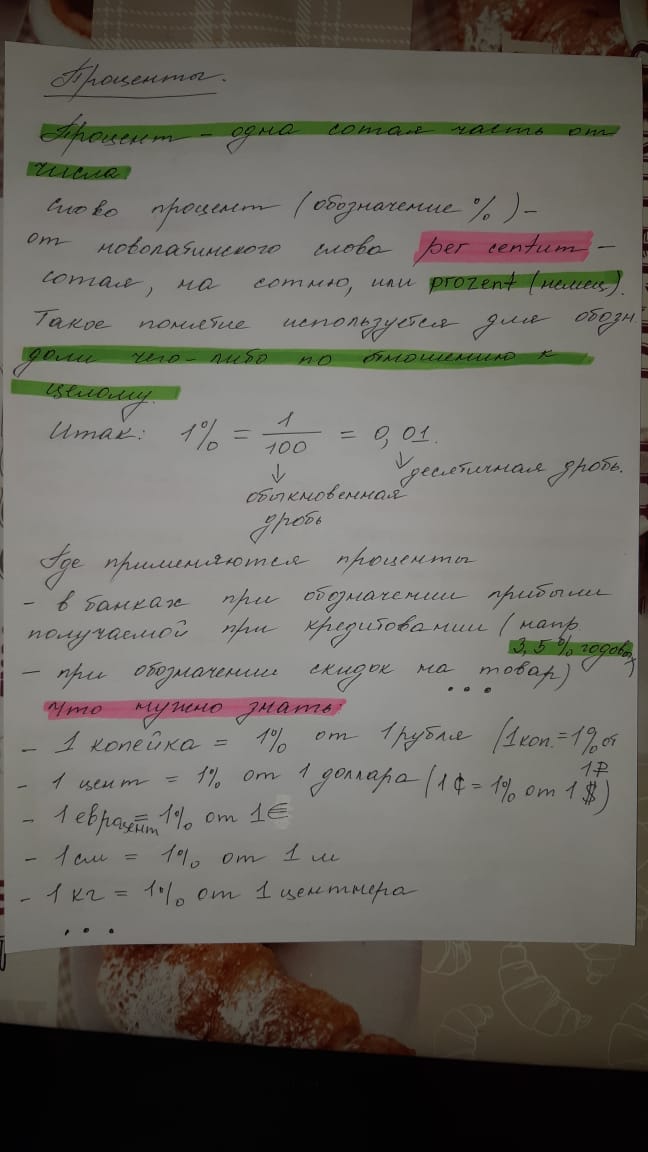 Проценты.
Процент - одна сотая часть от
числа
Слово процент (обозначение %) -
от новолатинского слова per centum -
сотая, на сотню, или prozent (немец).
Такое понятие используется для обозн
доли чего-либо по отношению к
целому.
Итак: 1% = 1/100 = 0,01.
↓ ↓ десятичная дробь.
обыкновенная
дробь
Где применяются проценты
- в банках при обозначении прибыли
получаемой при кредитовании (напр.
3,5% годовых)
- при обозначении скидок на товар)
...
Что нужно знать:
- 1 копейка = 1% от 1 рубля (1 коп. = 1% от
1₽
- 1 цент = 1% от 1 доллара (1 ¢ = 1% от 1 $)
- 1 евроцент = 1% от 1€
- 1 см = 1% от 1 м
- 1 кг = 1% от 1 центнера
...